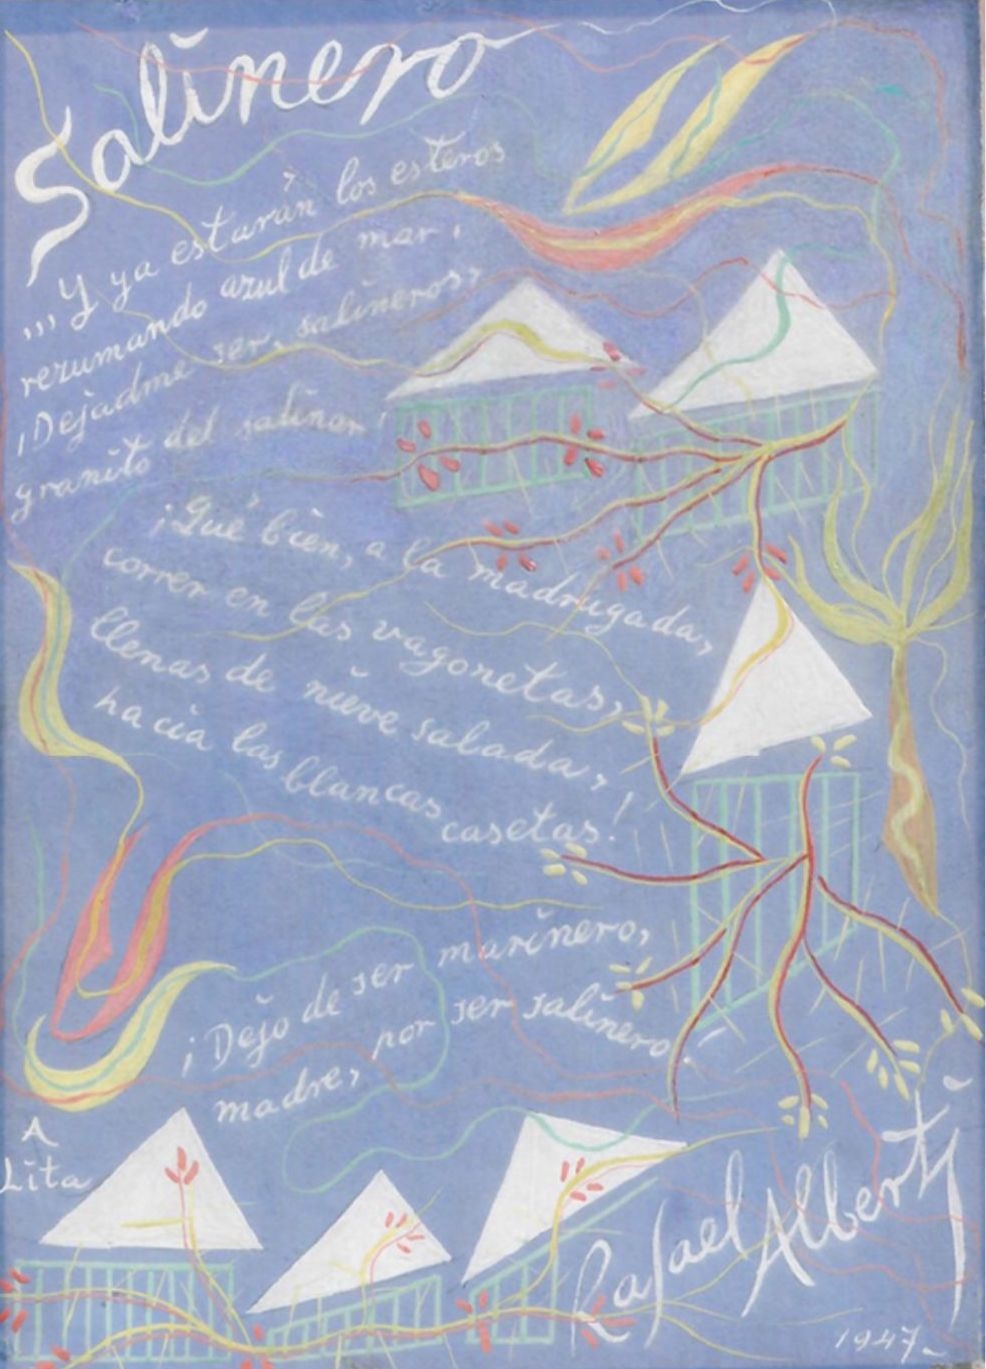 Salinero
...Y ya estarán los esteros
rezumando azul de mar.
¡Dejadme ser, salineros,
granito del salinar!
¡Qué bien, a la madrugada,
correr en las vagonetas,
llenas de nieve salada,
hacia las blancas casetas!
¡Dejo de ser marinero,
madre, por ser salinero!
A
Lita
Rafael Alberti
1947-